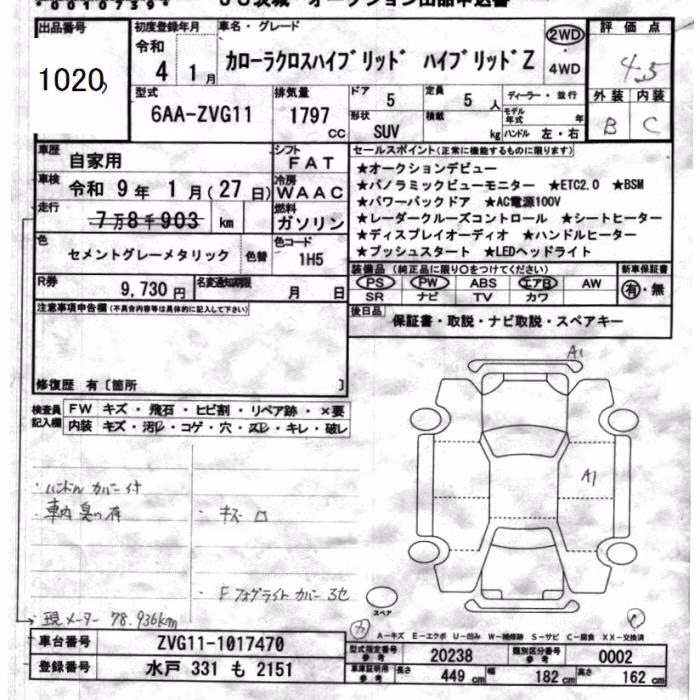 *00107394*
JU茨城 オークション出品申込書
出品番号
1020
初度登録年月
令和
4 1月
車名・グレード
カローラクロスハイブリッド ハイブリッドZ
2WD
4WD
評価点
4.5
外装 内装
B C
型式
6AA-ZVG11
排気量
1797 CC
ドア 5
形状 SUV
定員 5 人
積載 kg
ディーラー・並行
モデル年式 年
ハンドル 左・右
車歴
自家用
車検 令和 9年 1月(27日)
走行
7万8千903 km
シフト
FAT
冷房
WAAC
燃料
ガソリン
色
セメントグレーメタリック
色替
色コード
1H5
R券
9,730円
名変通知期限
月 日
セールスポイント(正常に機能するものに限ります)
★オークションデビュー
★パノラミックビューモニター ★ETC2.0 ★BSM
★パワーバックドア ★AC電源100V
★レーダークルーズコントロール ★シートヒーター
★ディスプレイオーディオ ★ハンドルヒーター
★プッシュスタート ★LEDヘッドライト
装備品(純正品に限り○をつけてください)
PS PW ABS エアB AW
SR ナビ TV カワ
新車保証書
有・無
後日品
保証書・取説・ナビ取説・スペアキー
注意事項申告欄(不具合内容等は具体的に記入して下さい)
修復歴 有〔箇所 〕
検査員記入欄
FW キズ・飛石・ヒビ割・リペア跡・×要
内装 キズ・汚レ・コゲ・穴・スレ・キレ・破レ
・ハンドルカバー付
・車内臭い有
・キズ
・Fフォグライトカバー
・現メーター 78,936km
A1
A1
スペア
A-キズ E-エクボ U-凹み W-補修跡 S-サビ C-腐食 XX-交換済
車台番号 ZVG11-1017470
登録番号 水戸 331 も 2151
型式指定番号 参考 20238
類別区分番号 参考 0002
車庫証明用 参考 長さ 449 cm 幅 182 cm 高さ 162 cm